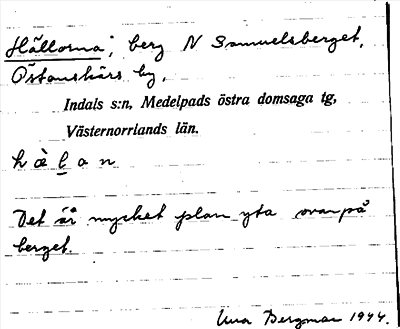 Hällorna; berg N Samuelsberget,
Östanskärs by,
Indals s:n, Medelpads östra domsaga tg,
Västernorrlands län.
hàlan
Det är mycket plan yta ovanpå
berget.
Bergman 1944.